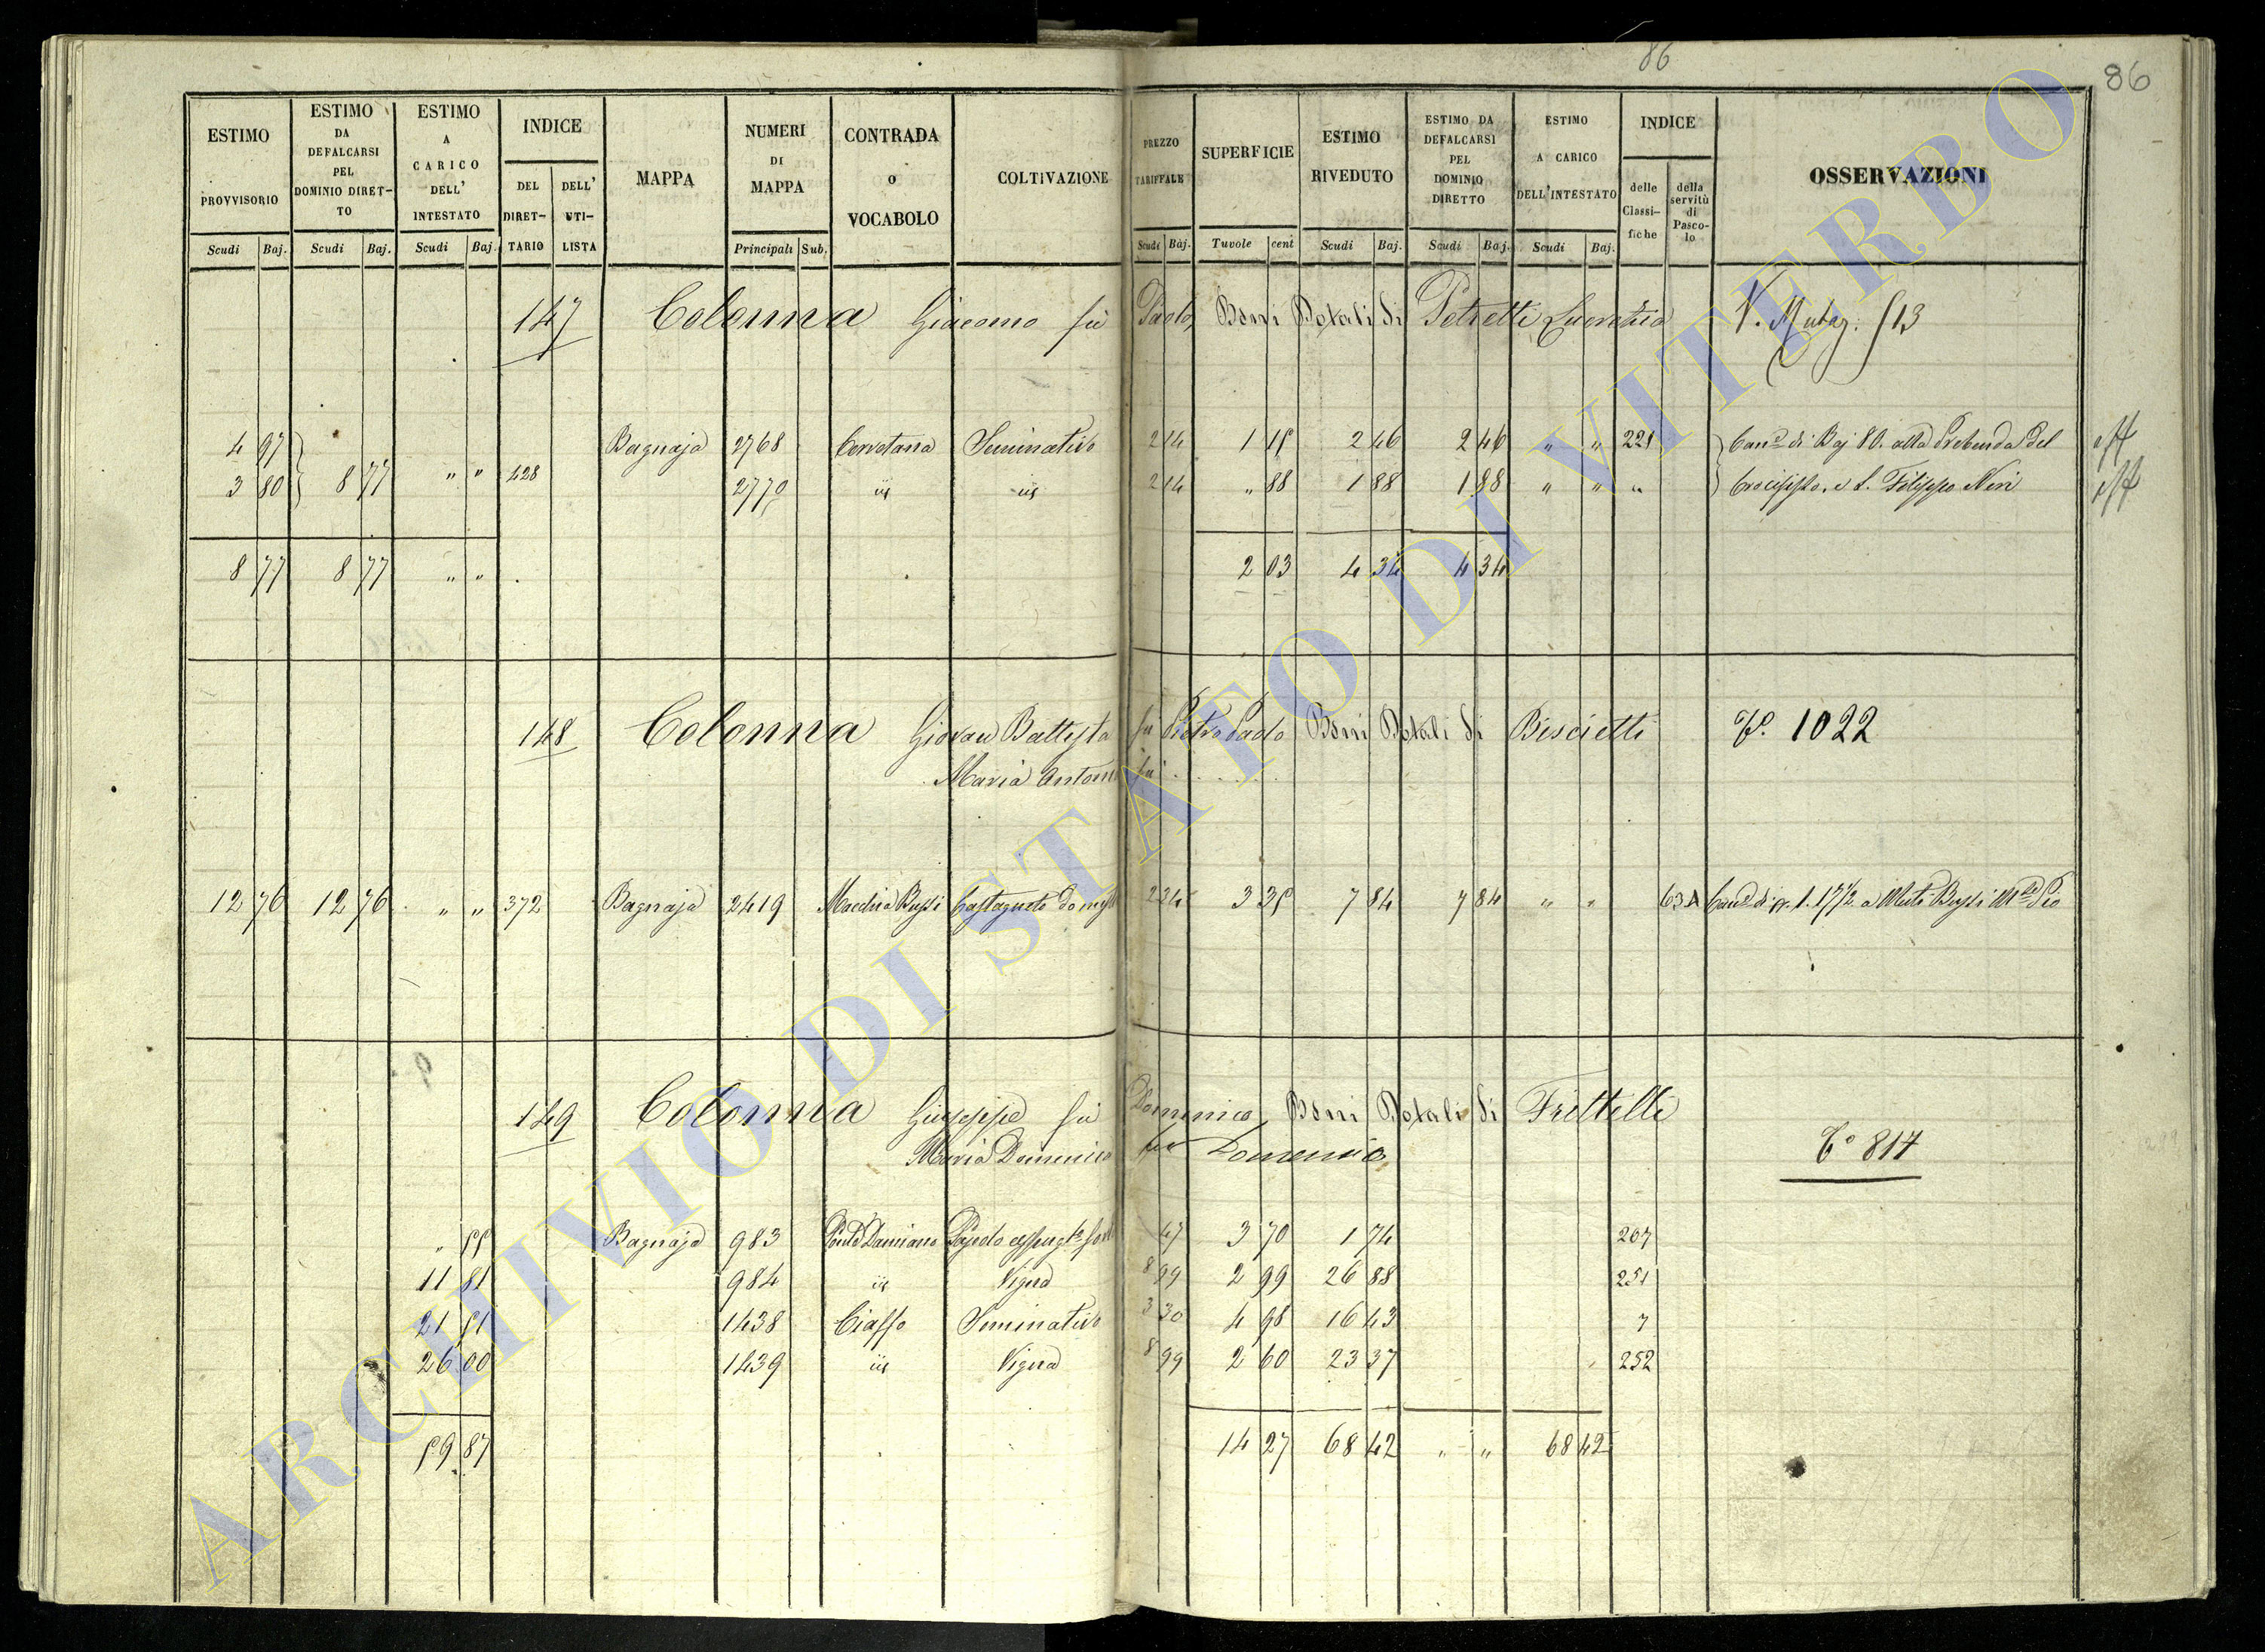 86
86
ESTIMO PROVVISORIO Scudi Baj.
ESTIMO DA DEFALCARSI PEL DOMINIO DIRET-TO Scudi Baj.
ESTIMO A CARICO DELL' INTESTATO Scudi Baj.
INDICE DEL DIRET-TARIO DELL' UTI-LISTA
MAPPA
NUMERI DI MAPPA Principali Sub.
CONTRADA o VOCABOLO
COLTIVAZIONE
PREZZO TARIFFALE Scudi Baj.
SUPERFICIE Tuvole cent
ESTIMO RIVEDUTO Scudi Baj.
ESTIMO DA DEFALCARSI PEL DOMINIO DIRETTO Scudi Baj.
ESTIMO A CARICO DELL'INTESTATO Scudi Baj.
INDICE delle Classi-fiche della servitù di Pasco-lo
OSSERVAZIONI
147 Colonna Giacomo fù Paolo, Beni Dotali di Petretti Lucrezia
4 97 Bagnaja 2768 Seminativo 2 14 1 15 2 46 2 46 " " 221 di Baj 80. alla Prebenda del
3 80 8 77 " " 428 2770 iis iis 2 14 " 88 1 88 1 88 " " " Crocifisso, e S. Filippo Neri
8 77 8 77 " " 2 03 4 34 4 34
148 Colonna Giovan Battista fù Pietro Paolo Beni Dotali di Biscietti 1022
Maria Anton fù . . . . . .
12 76 12 76 " " 372 Bagnaja 2419 Macchia Bussi Castagneto 2 34 3 35 7 84 7 84 " " 634 a Muti Bussi Pio
149 Colonna Giuseppe fù Domenico, Beni Dotali di Frittelli
Maria Domenica fù Domenico
817
" 55 Bagnaja 983 Damiano 47 3 70 1 74 207
11 81 984 iis Vigna 8 99 2 99 26 88 251
21 51 1438 Seminativo 3 30 4 98 16 43 7
26 00 1439 iis Vigna 8 99 2 60 23 37 252
59 87 14 27 68 42 " " 68 42
ARCHIVIO DI STATO DI VITERBO